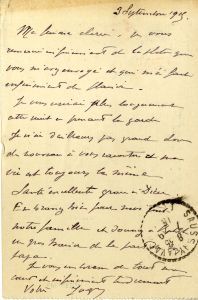 2 Septembre 1915.
Ma bien chère, je vous
remercie infiniment de la
que
vous m'avez envoyé et qui m'a fait
infiniment de plaisir.
Je vous écrirai plus longuement
cette nuit en prenant la garde
Je n'ai d'ailleurs pas grand chose
de nouveau à vous raconter et ma
vie est toujours la même
Santé excellente grâce à Dieu
Embrassez bien pour moi toute
notre famille et donnez
un gros baiser de la part
papa.
Je vous embrasse de tout
cœur et infiniment tendrement
Votre